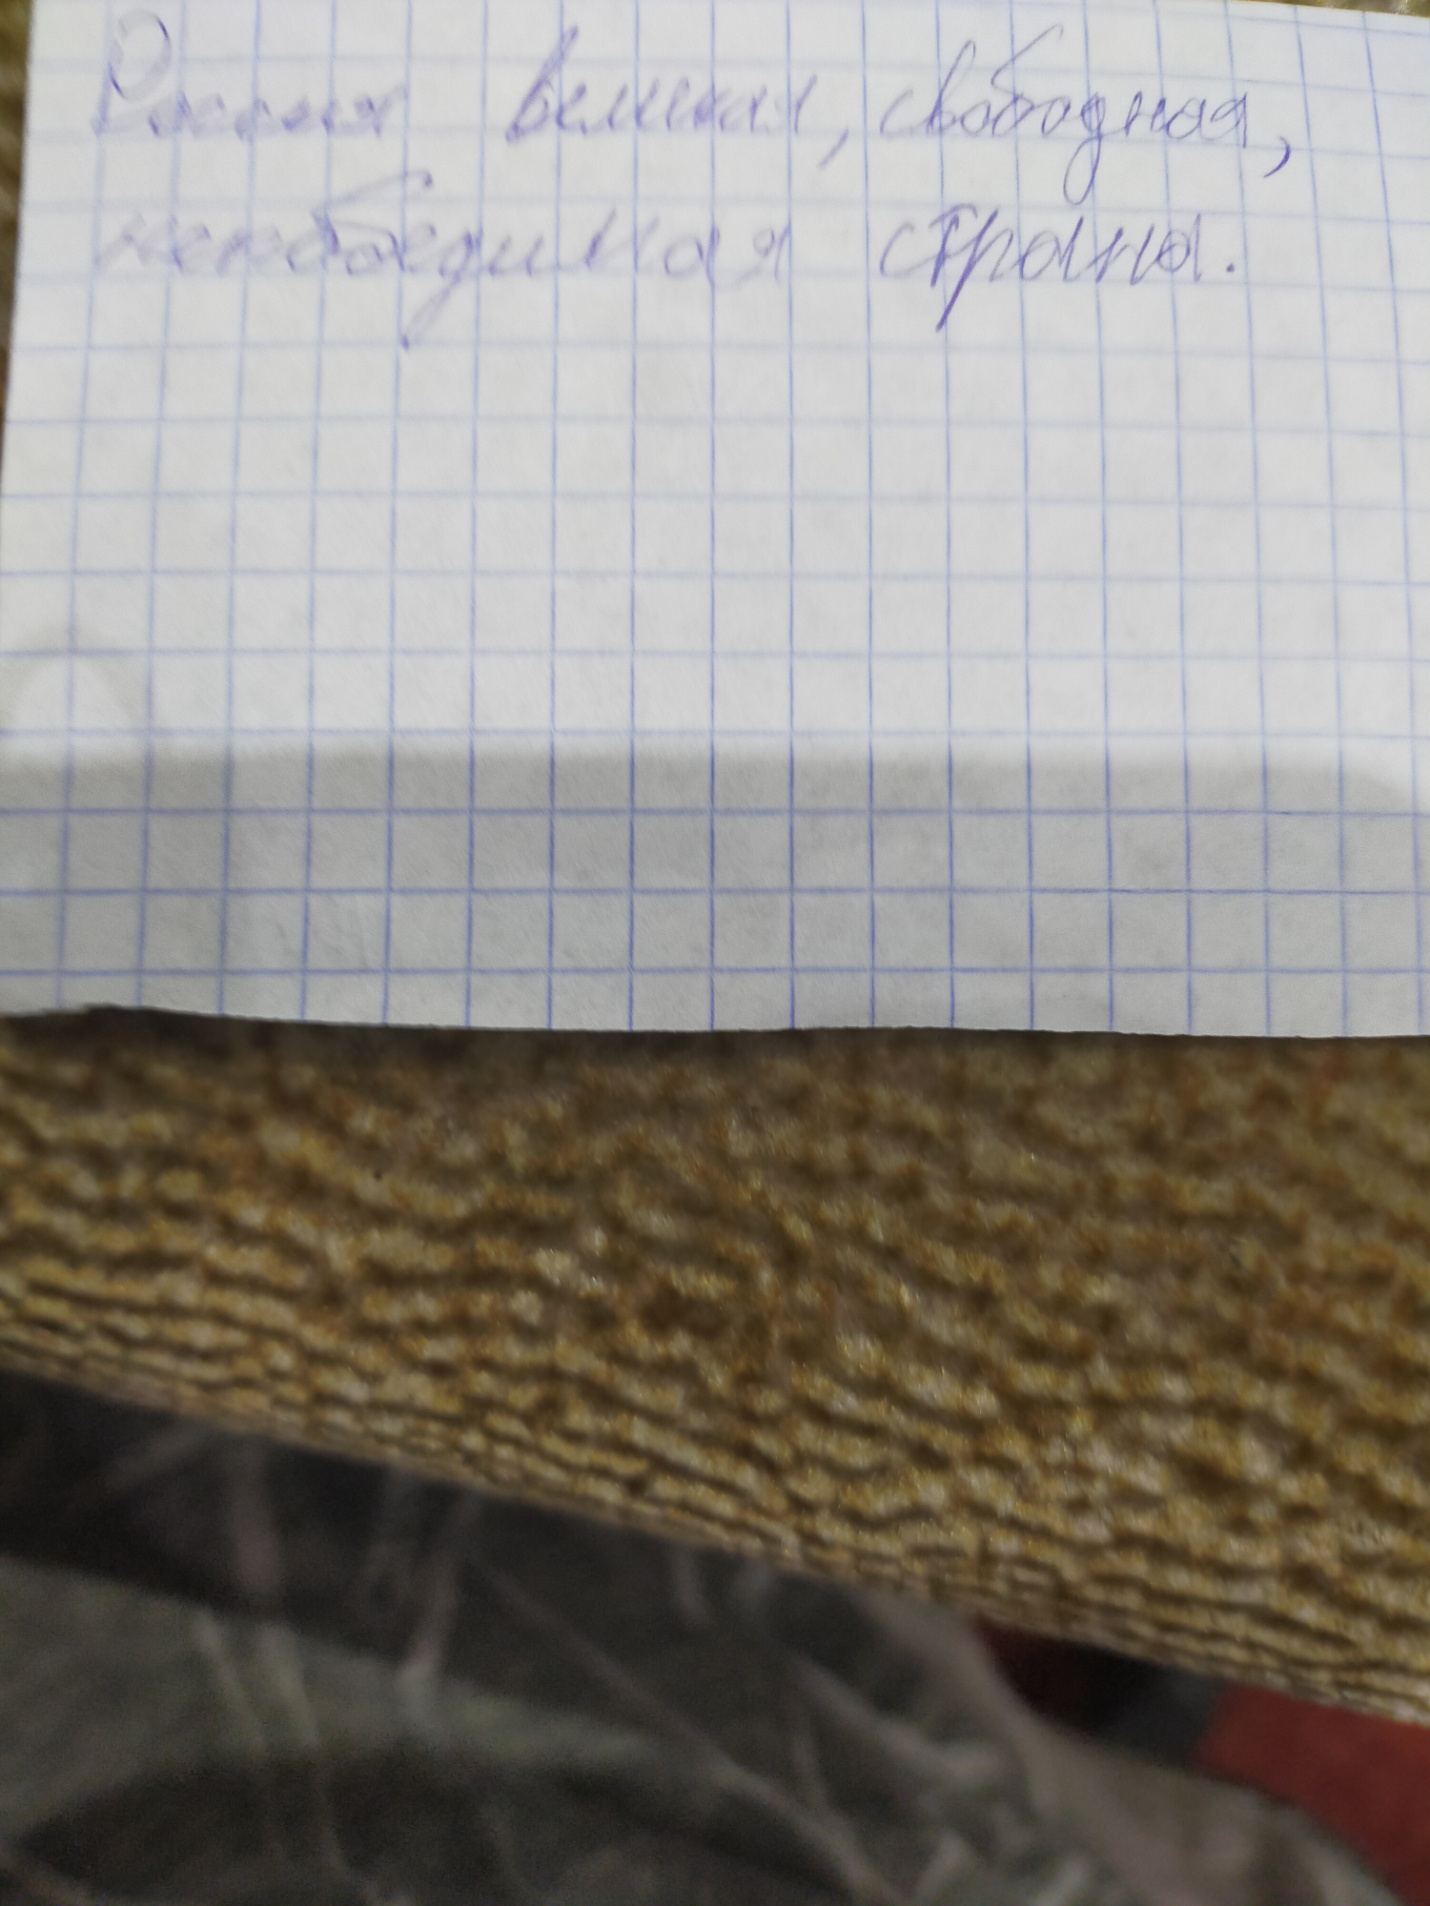 Россия великая, свободная,
непобедимая страна.